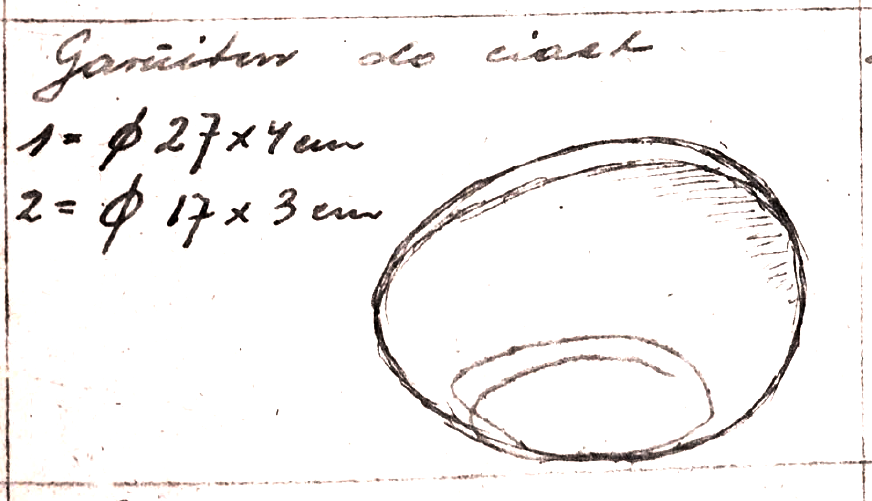 Garnitur do ciast
1 = ϕ 27 x 4 cm
2 = ϕ 17 x 3 cm